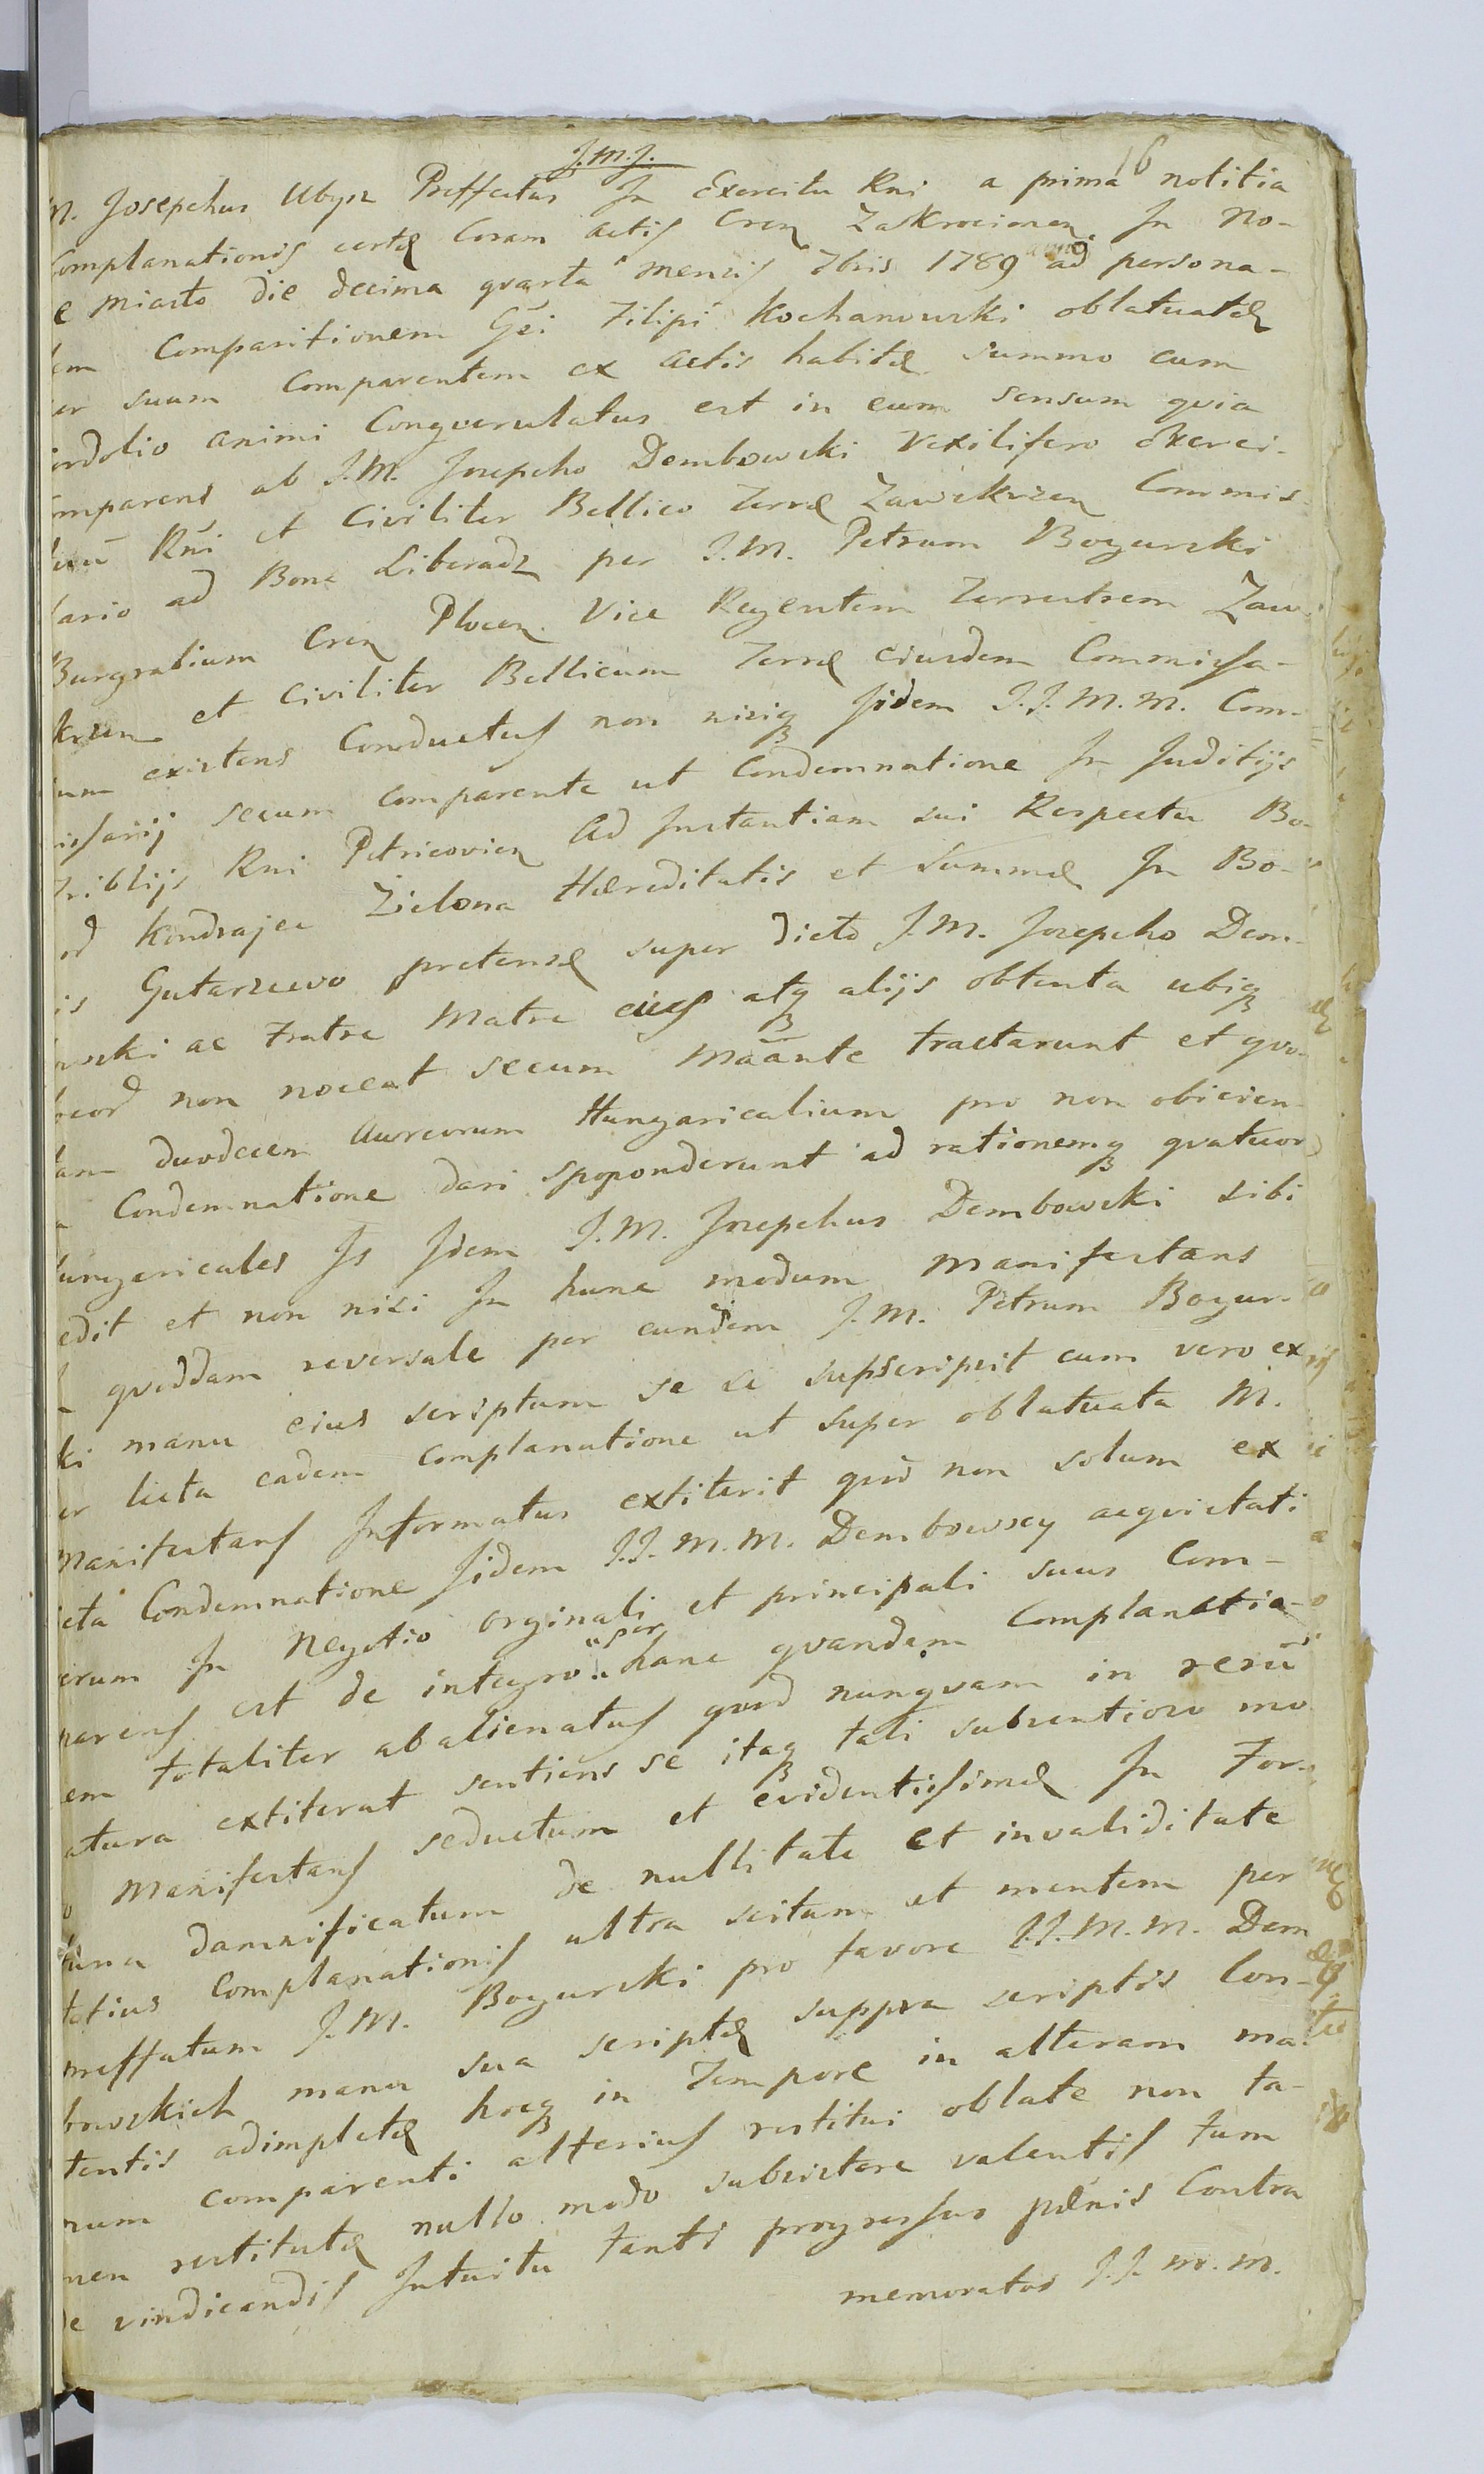 J.M.J.
16
M. Josephus Ubysz Preffectus In Exercitu Rni a prima notitia
Complanationis certæ Coram Actis Cren Zakrocimen In No-
e Miasto die decima qvarta mensis 7bris 1789 anno ad persona-
lem Comparitionem Gsi Filipi Kochanowski oblatuatæ
per suum Comparentem ex Actis habitæ summo cum
cordolio animi Conqverulatus est in eum sensum qvia
omparens ab J.M. Josepho Dembowski Vexilifero Exerci-
tuu Rni et Civiliter Bellico Terræ Zawskrzen Commis-
sario ad Bona Liberadz per J.M. Petrum Bogurski
Burgrabium Cren Plocen Vice Regentem Terrestrem Zaw-
krzen et Civiliter Bellicum Terræ eiusdem Commissa-
rium existens Conductus non nisiq Iidem J.J.M.M. Com-
missarij secum comparente ut Condemnatione In Juditijs
Triblijs Rni Petricovien Ad Instantiam sui Respectu Bo-
nor Kondrajec Zielona Hæreditatis et Summæ In Bo-
is Gutarzewo pretensæ super dicto J.M. Josepho Dem-
bowski ac Fratre Matre eius atq alijs obtenta ubiq
locor non noceat secum Maante tractarunt et qvo-
tam duodecem Aureorum Hungaricalium pro non obicien-
a Condemnatione dari spoponderunt ad rationemq qvatuor
Hungaricales Is Idem J.M. Josephus Dembowski sibi
dedit et non nisi In hunc modum manifestans
qvoddam reversale per eundem J.M. Petrum Bogur-
ki manu eius scriptum se se supscripsit cum vero ex
per lecta eadem complanatione ut super oblatuata M.
Manifestans Informatus extiterit qvod non solum ex
dicta Condemnatione Iidem J.J.M.M. Dembowscy aeqvietati
verum In Negotio orginali et principali suus Com-
parens est de integro per hanc qvandam Complanatio-
em totaliter abalienatus qvod nunqvam in rerū
natura extiterat sentiens se itaq tali subrentioso mo
o Manifestans seductum et evidentissimæ In For-
tuna damnificatum de nullitate et invaliditate
totius Complanationis ultra scitum et mentem per
preffatum J.M. Bogurski pro favore J.J.M.M. Dem
bowskich manu sua scriptæ suppra scriptis Con-
tentis adimpletæ hocq in Tempore in alteram ma-
num comparenti alterius restitui oblate non ta-
men restitutæ nullo modo subsistere valentis tum
de vindicandis Intuitu tanti progressus pænis Contra
memoratos J.J.M.M.